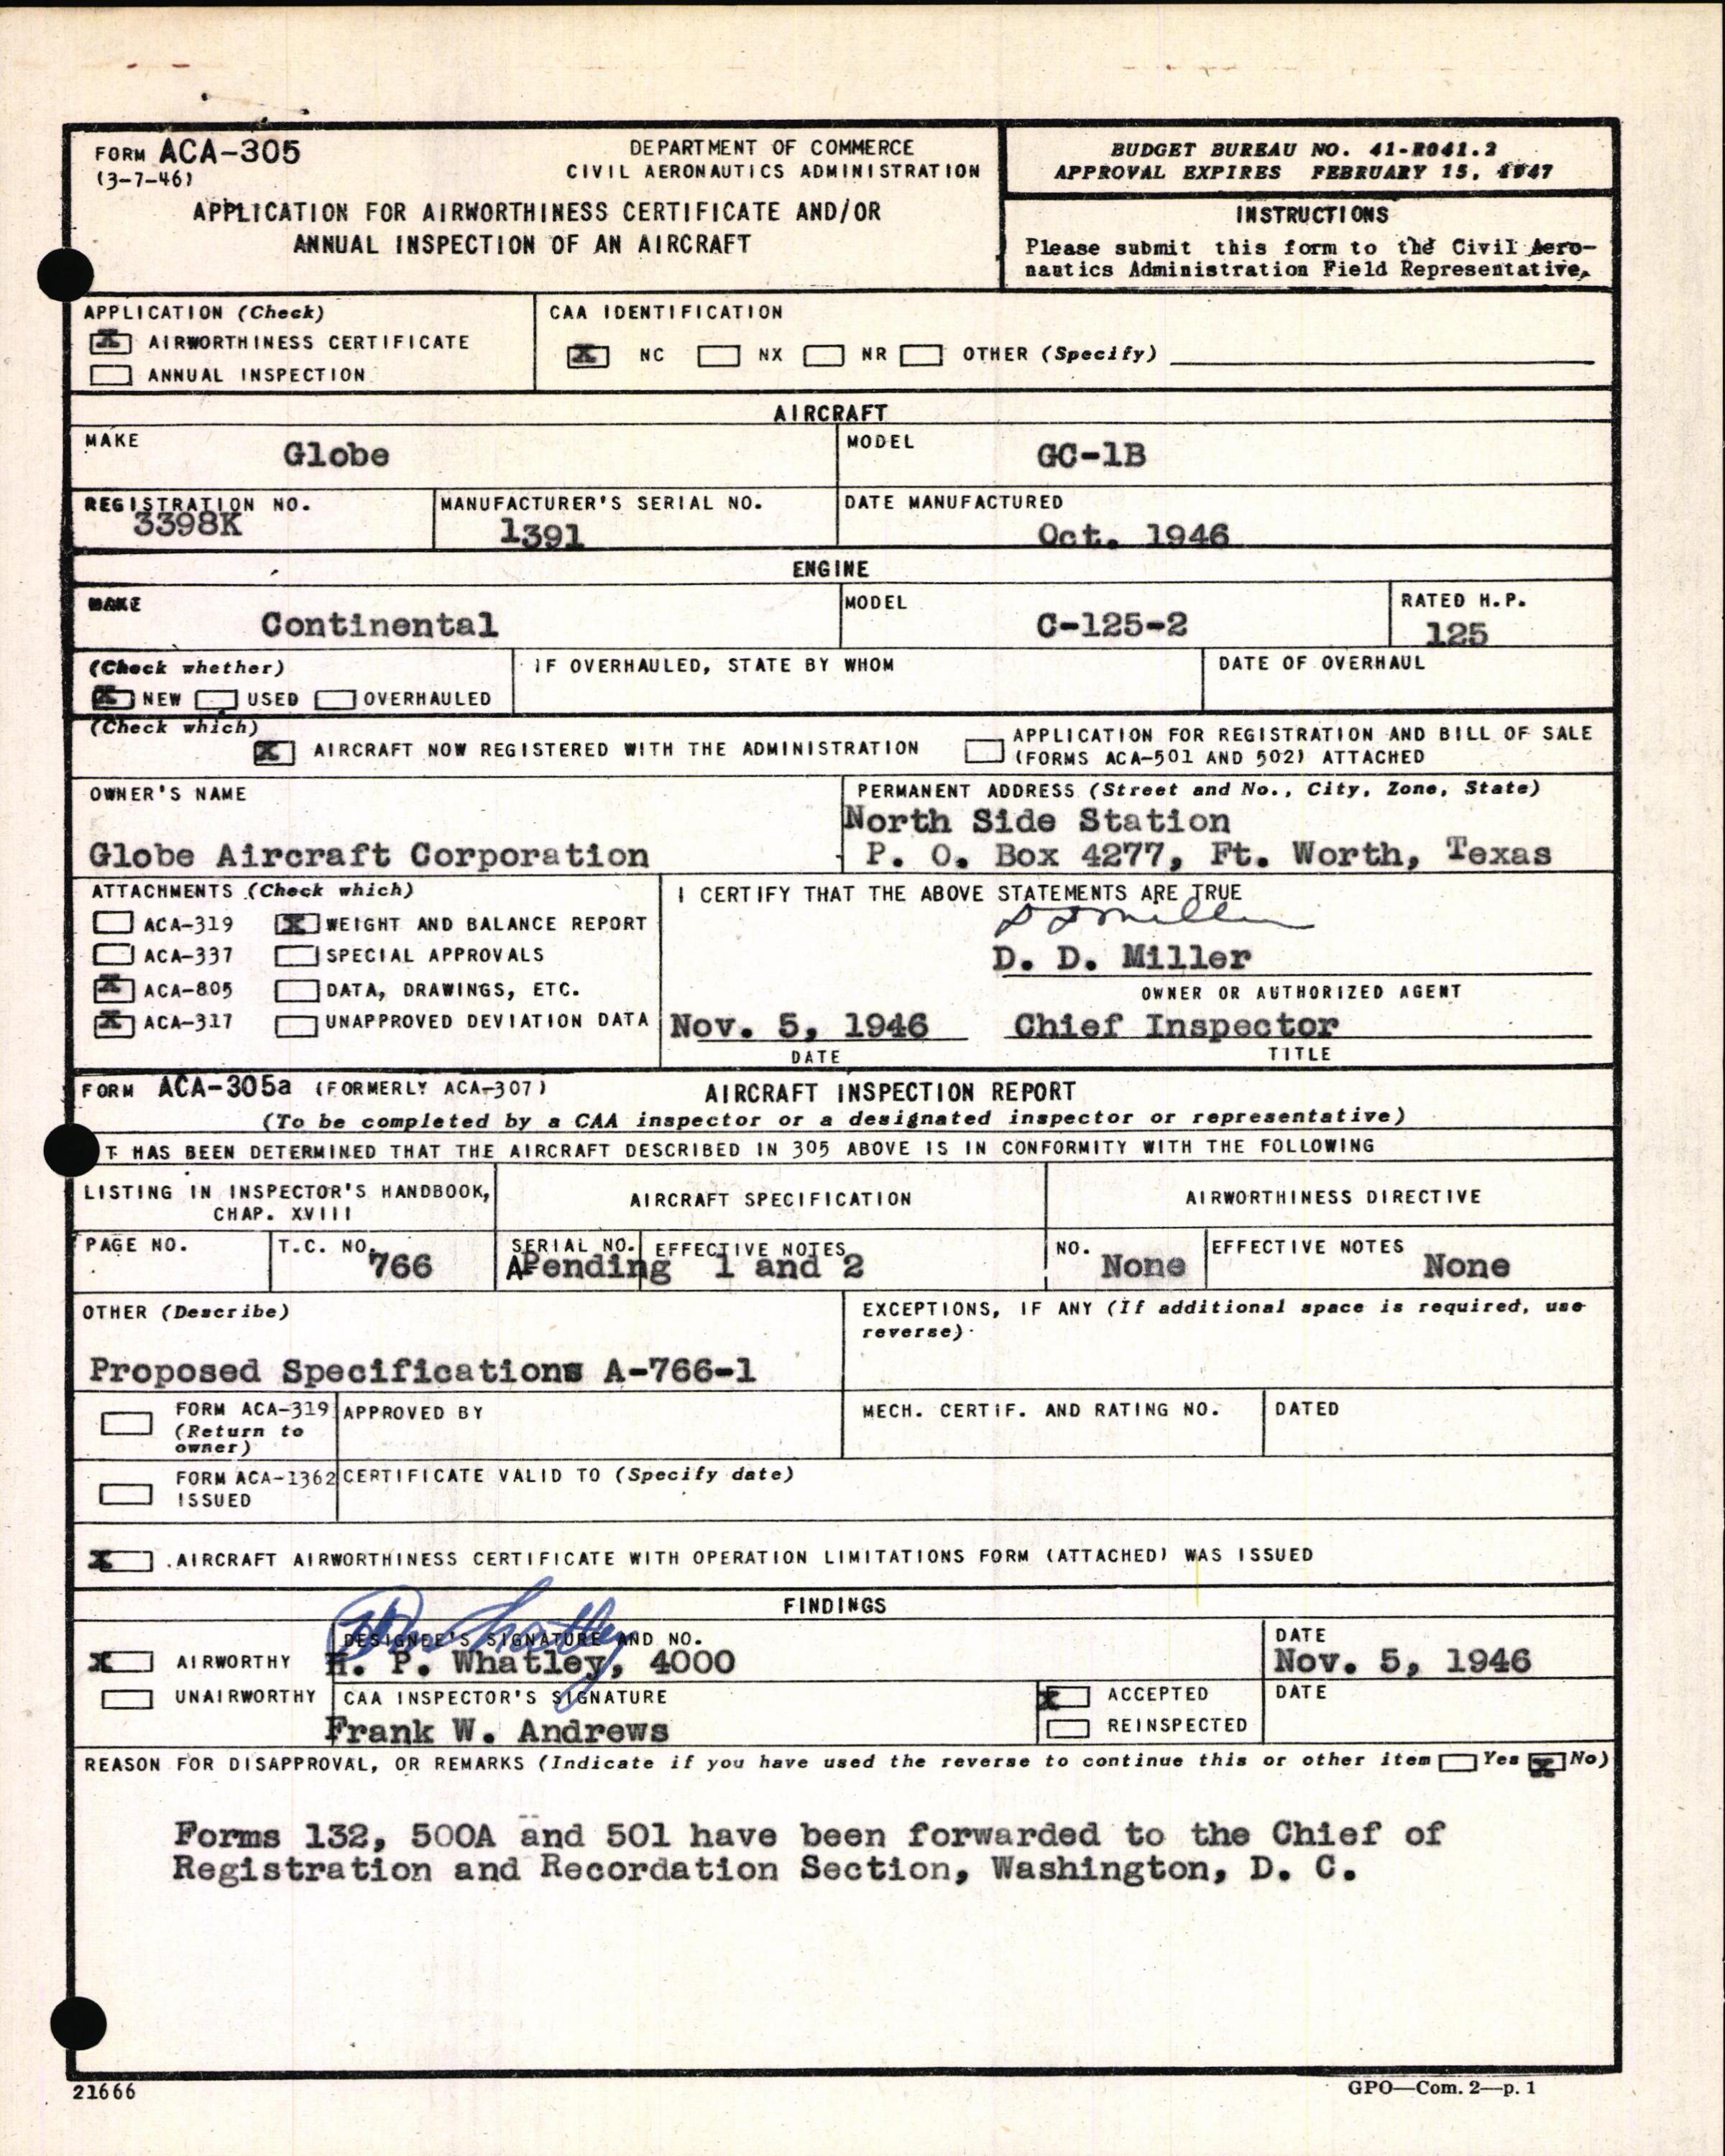 FORM ACA-305
(3-7-46)
DEPARTMENT OF COMMERCE
CIVIL AERONAUTICS ADMINISTRATION
APPLICATION FOR AIRWORTHINESS CERTIFICATE AND/OR
ANNUAL INSPECTION OF AN AIRCRAFT
BUDGET BUREAU NO. 41-R041.2
APPROVAL EXPIRES FEBRUARY 15, 1947
INSTRUCTIONS
Please submit this form to the Civil Aero-
nautics Administration Field Representative.
APPLICATION (Check)
X AIRWORTHINESS CERTIFICATE
ANNUAL INSPECTION
CAA IDENTIFICATION
X NC NX NR OTHER (Specify)
AIRCRAFT
MAKE
Globe
MODEL
GC-1B
REGISTRATION NO.
3398K
MANUFACTURER'S SERIAL NO.
1391
DATE MANUFACTURED
Oct. 1946
ENGINE
MAKE
Continental
MODEL
C-125-2
RATED H.P.
125
(Check whether)
X NEW USED OVERHAULED
IF OVERHAULED, STATE BY WHOM
DATE OF OVERHAUL
(Check which)
X AIRCRAFT NOW REGISTERED WITH THE ADMINISTRATION
APPLICATION FOR REGISTRATION AND BILL OF SALE
(FORMS ACA-501 AND 502) ATTACHED
OWNER'S NAME
Globe Aircraft Corporation
PERMANENT ADDRESS (Street and No., City, Zone, State)
North Side Station
P. O. Box 4277, Ft. Worth, Texas
ATTACHMENTS (Check which)
ACA-319 X WEIGHT AND BALANCE REPORT
ACA-337 SPECIAL APPROVALS
X ACA-805 DATA, DRAWINGS, ETC.
X ACA-317 UNAPPROVED DEVIATION DATA
I CERTIFY THAT THE ABOVE STATEMENTS ARE TRUE
D D Miller
D. D. Miller
OWNER OR AUTHORIZED AGENT
Nov. 5, 1946 Chief Inspector
DATE TITLE
FORM ACA-305a (FORMERLY ACA-307) AIRCRAFT INSPECTION REPORT
(To be completed by a CAA inspector or a designated inspector or representative)
T HAS BEEN DETERMINED THAT THE AIRCRAFT DESCRIBED IN 305 ABOVE IS IN CONFORMITY WITH THE FOLLOWING
LISTING IN INSPECTOR'S HANDBOOK,
CHAP. XVIII
AIRCRAFT SPECIFICATION
AIRWORTHINESS DIRECTIVE
PAGE NO.
T.C. NO.
766
SERIAL NO.
APending
EFFECTIVE NOTES
1 and 2
NO.
None
EFFECTIVE NOTES
None
OTHER (Describe)
Proposed Specifications A-766-1
EXCEPTIONS, IF ANY (If additional space is required, use
reverse).
FORM ACA-319
(Return to
owner)
APPROVED BY
MECH. CERTIF. AND RATING NO.
DATED
FORM ACA-1362
ISSUED
CERTIFICATE VALID TO (Specify date)
X AIRCRAFT AIRWORTHINESS CERTIFICATE WITH OPERATION LIMITATIONS FORM (ATTACHED) WAS ISSUED
FINDINGS
X AIRWORTHY
UNAIRWORTHY
DESIGNEE'S SIGNATURE AND NO.
H. P. Whatley, 4000
DATE
Nov. 5, 1946
CAA INSPECTOR'S SIGNATURE
Frank W. Andrews
X ACCEPTED
REINSPECTED
DATE
REASON FOR DISAPPROVAL, OR REMARKS (Indicate if you have used the reverse to continue this or other item Yes X No)
Forms 132, 500A and 501 have been forwarded to the Chief of
Registration and Recordation Section, Washington, D. C.
21666
GPO—Com. 2—p. 1